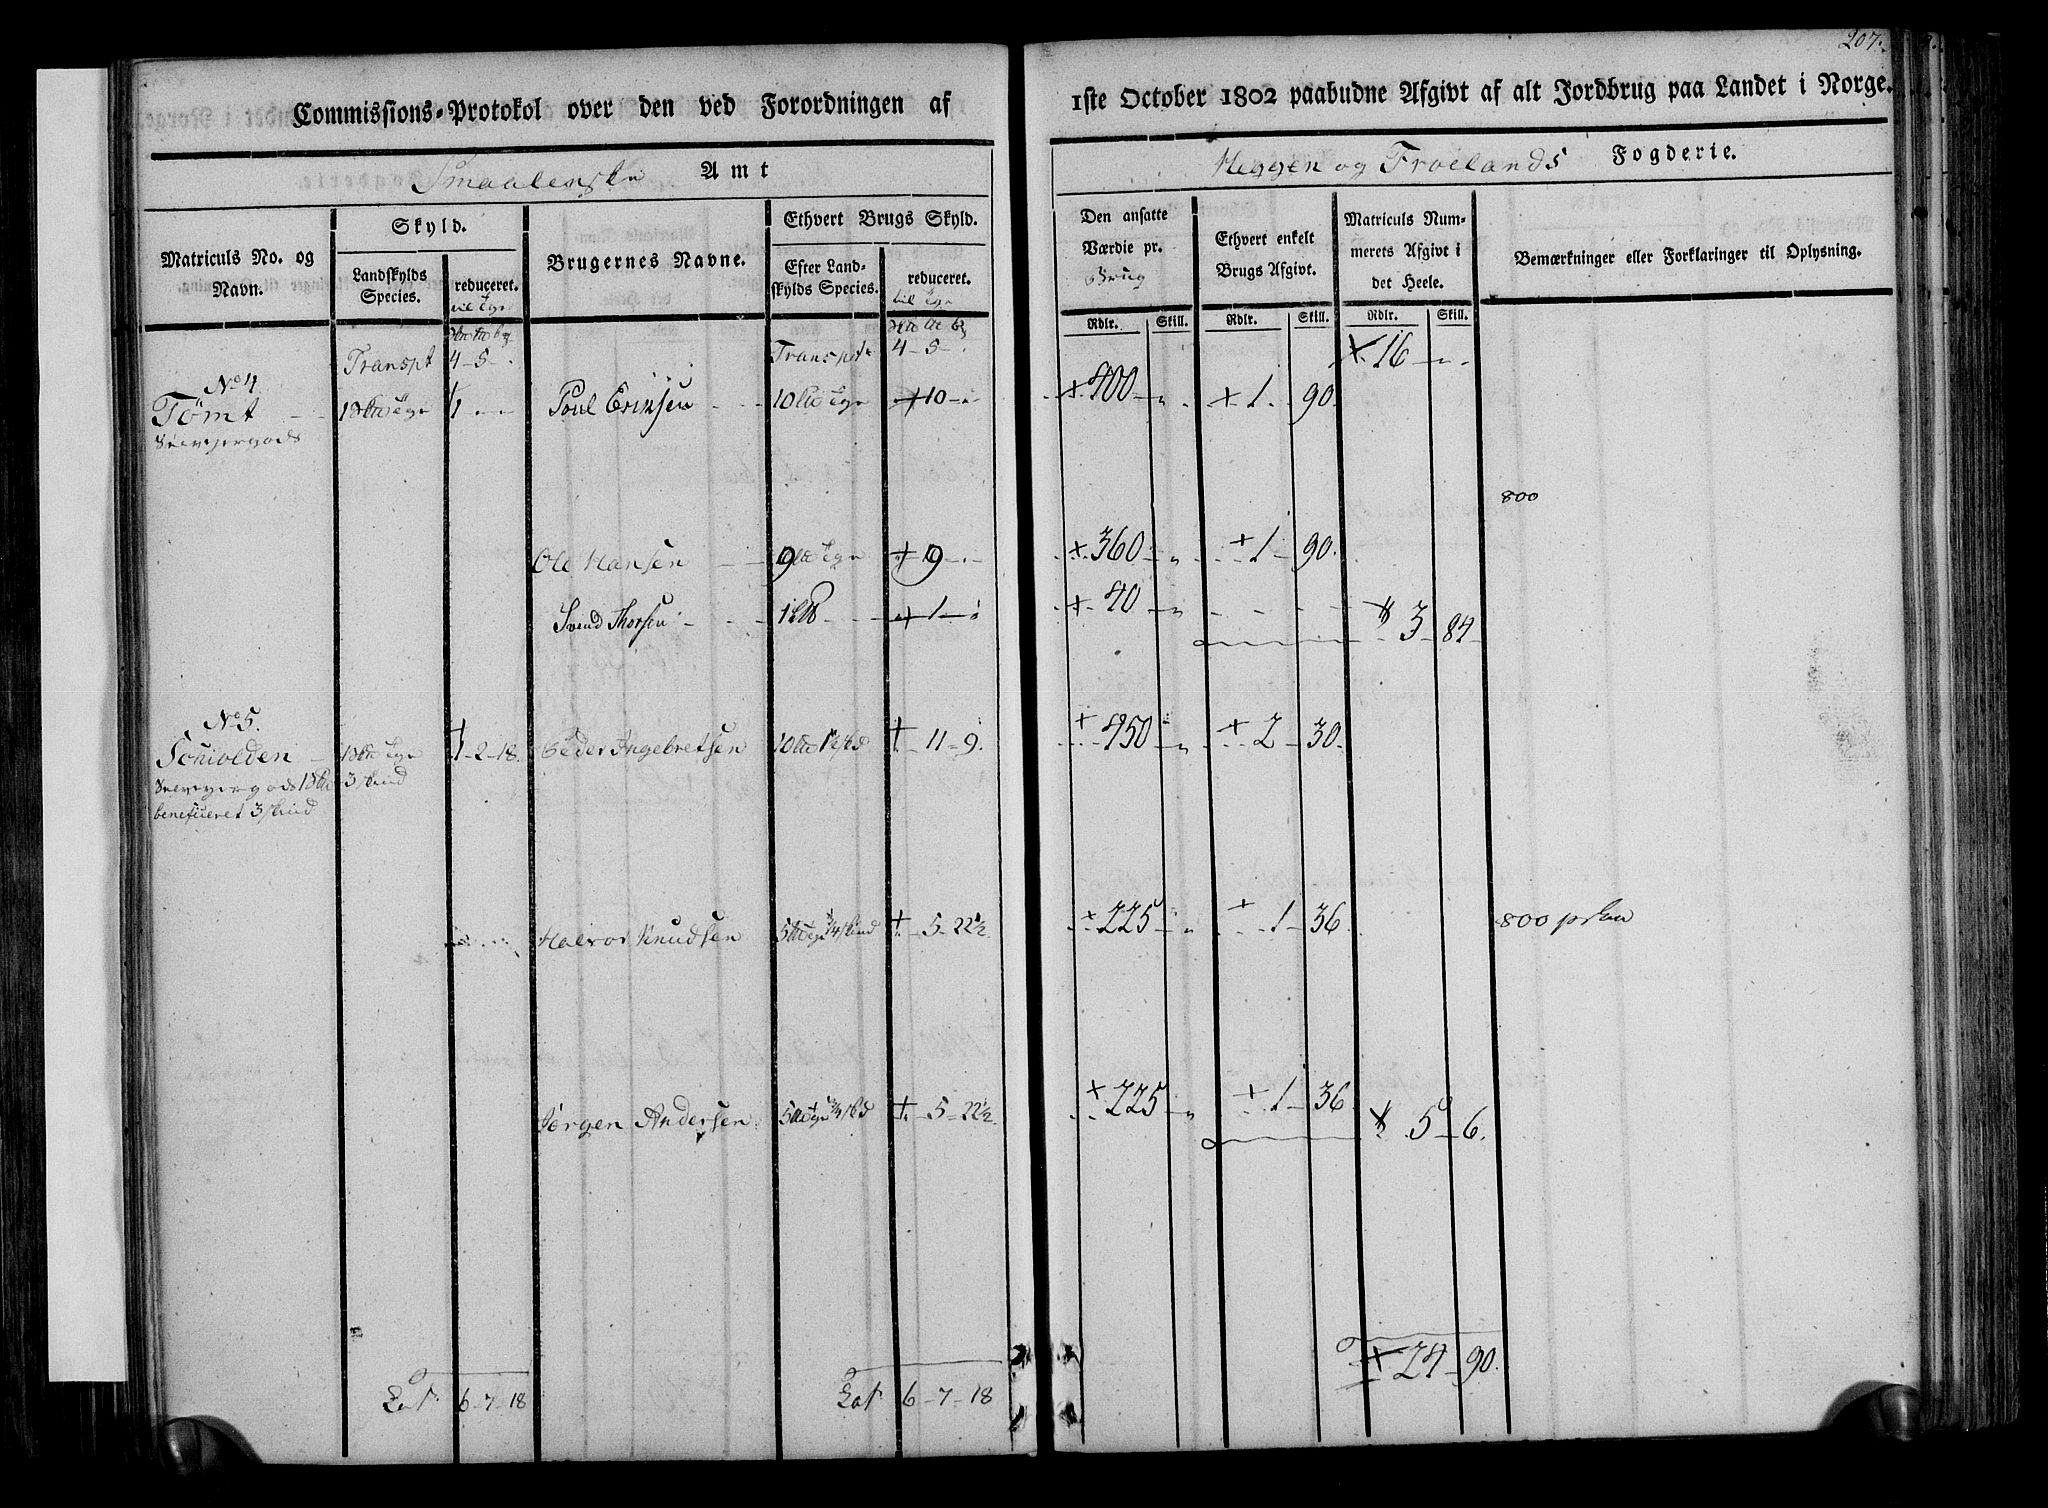 207.
Commissions-Protokol over den ved Forordningen af
1ste October 1802 paabudne Afgivt af alt Jordbrug paa Landet i Norge.
Smaalenske Amt
Heggen og Froelands Fogderie.
Matriculs No. og Navn.
Skyld.
Landskylds Species.
reduceret.
Brugernes Navne.
Ethvert Brugs Skyld.
Efter Landskylds Species.
reduceret.
Den ansatte Værdie pr. Brug
Rdlr. Skill.
Ethvert enkelt Brugs Afgivt.
Rdlr. Skill.
Matriculs Nummerets Afgivt i det Heele.
Rdlr. Skill.
Bemærkninger eller Forklaringer til Oplysning.
Transpt 4 - 5 - Transpt 4 - 5 - 16 -
No 4
Tömt 1 - - Poul Erixsen 10 10 - 400 - 1 - 90.
800
Ole Hansen 9 9 - 360 - 1 - 90.
Svend Thorsen 1 1 - 40 - 3 - 84
No 5.
1 - 2 - 18. Peder Ingebretsen 10 11 - 9. 450 - 2 - 30.
3 skind
benificeret 3 skind
Halvor Knudsen 5 5 - 22½ 225 - 1 - 36 800
Jørgen Andersen 5 5 - 22½ 225 - 1 - 36 5 - 6.
Lat. 6 - 7 - 18 Lat. 6 - 7 - 18 24 - 90.